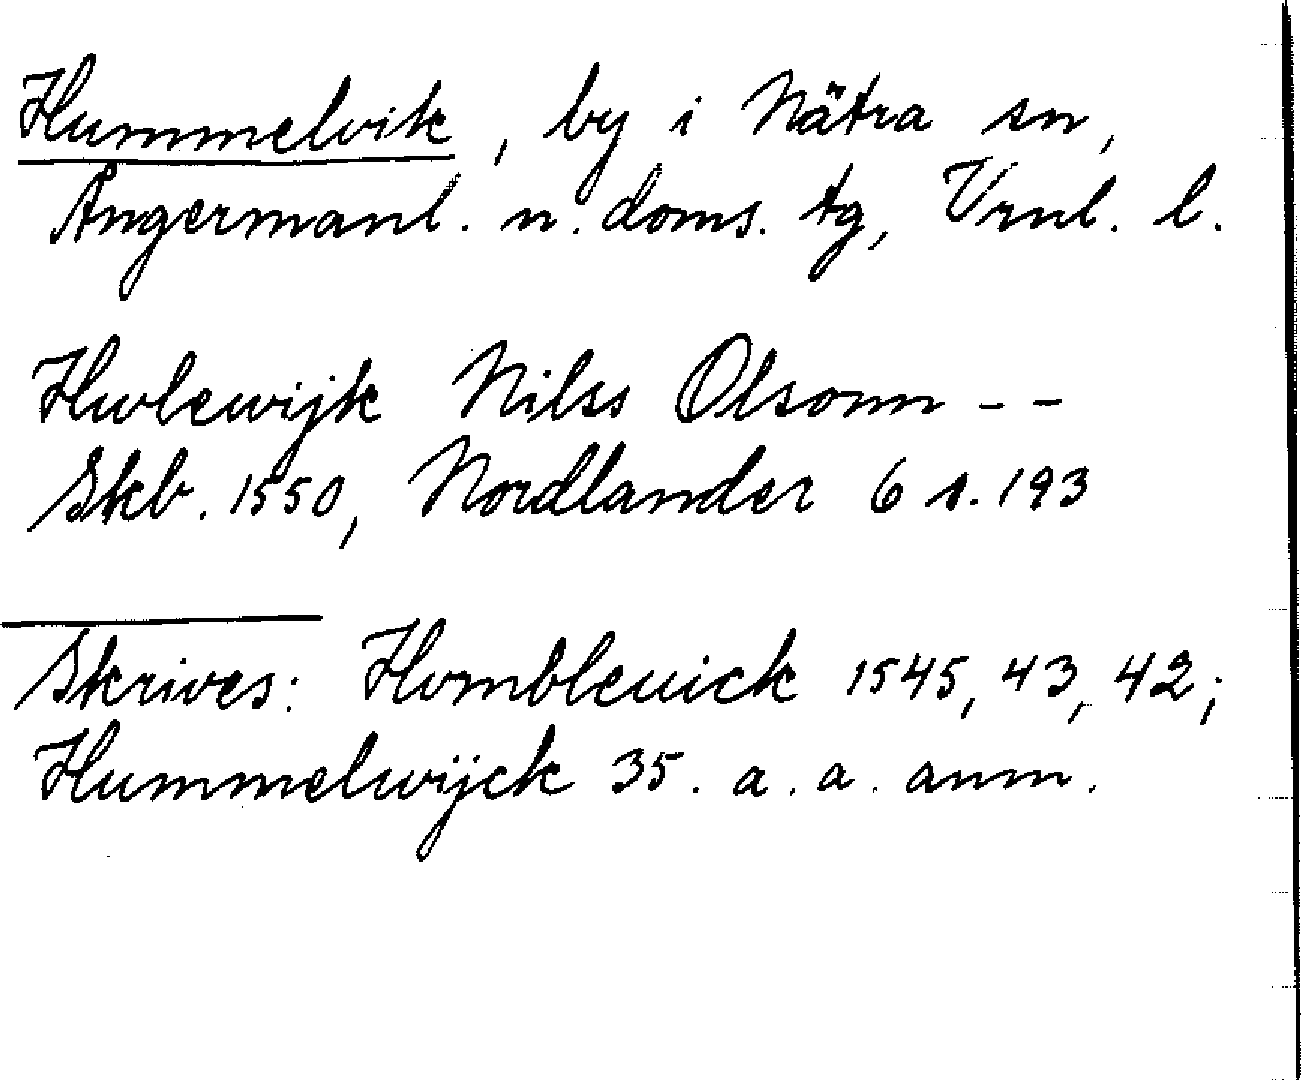 Hummelvik, by i Nätra sn,
Ångermanl. n. doms. tg, Vrnl. l.
Hvlewijk Nilss Olsonn - -
Skb. 1550, Nordlander 6 s. 193
Skrives: Hvmbleuick 1545, 43, 42;
Hummelwijck 35. a. a. anm.